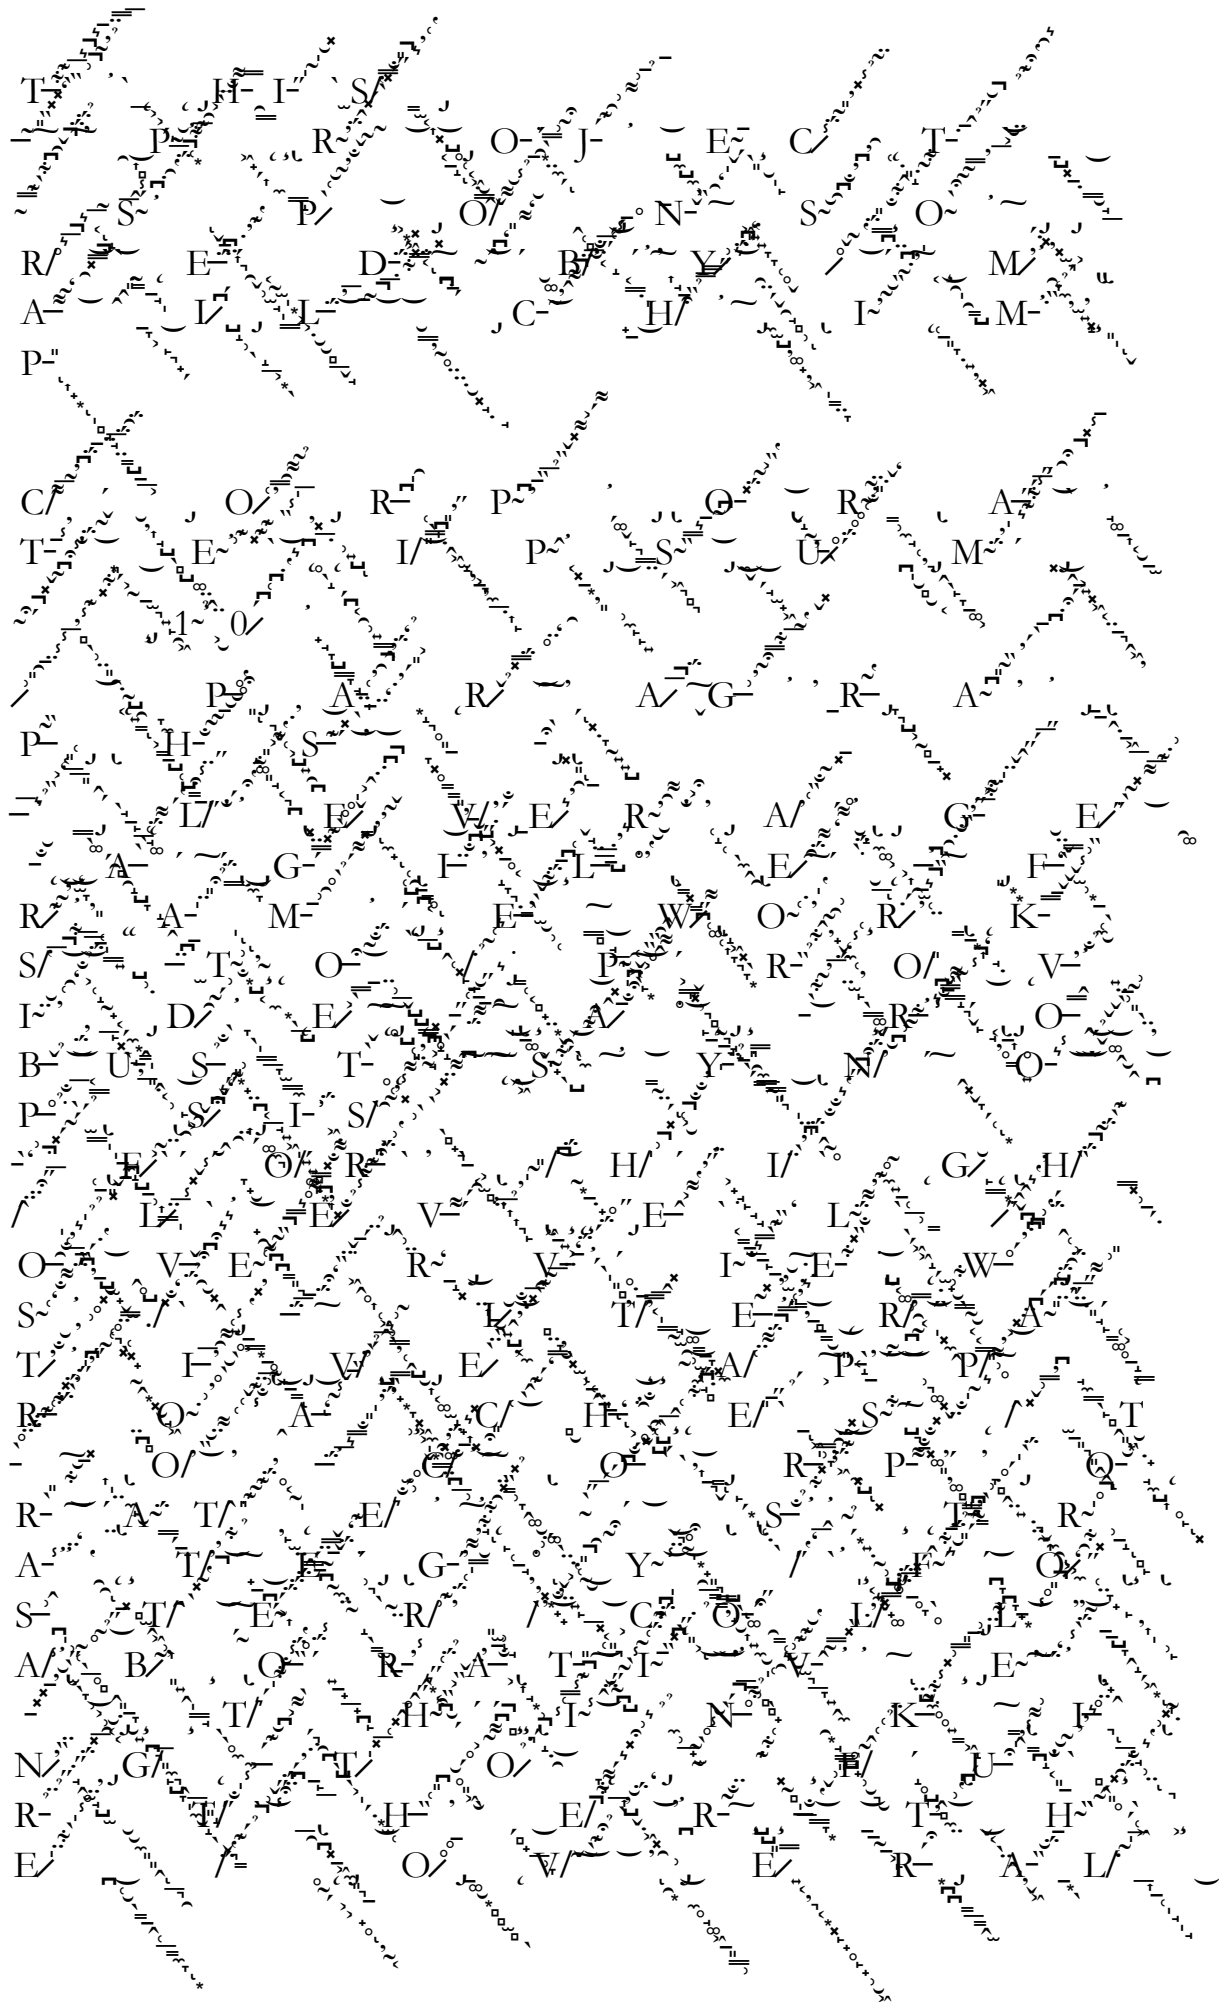 THIS
PROJECT
SPONSO
RED BY M
AILCHIM
P
CORPORA
TE IPSUM
10
PARAGRA
PHS
LEVERAGE
AGILE F
RAMEWORK
S TO PROV
IDE A RO
BUST SYNO
PSIS
FOR HIGH
LEVEL
OVERVIEW
S. ITERA
TIVE APP
ROACHES T
O CORPO
RATE STR
ATEGY FO
STER COLL
ABORATIVE
THINKI
NG TO FU
RTHER TH
E OVERAL